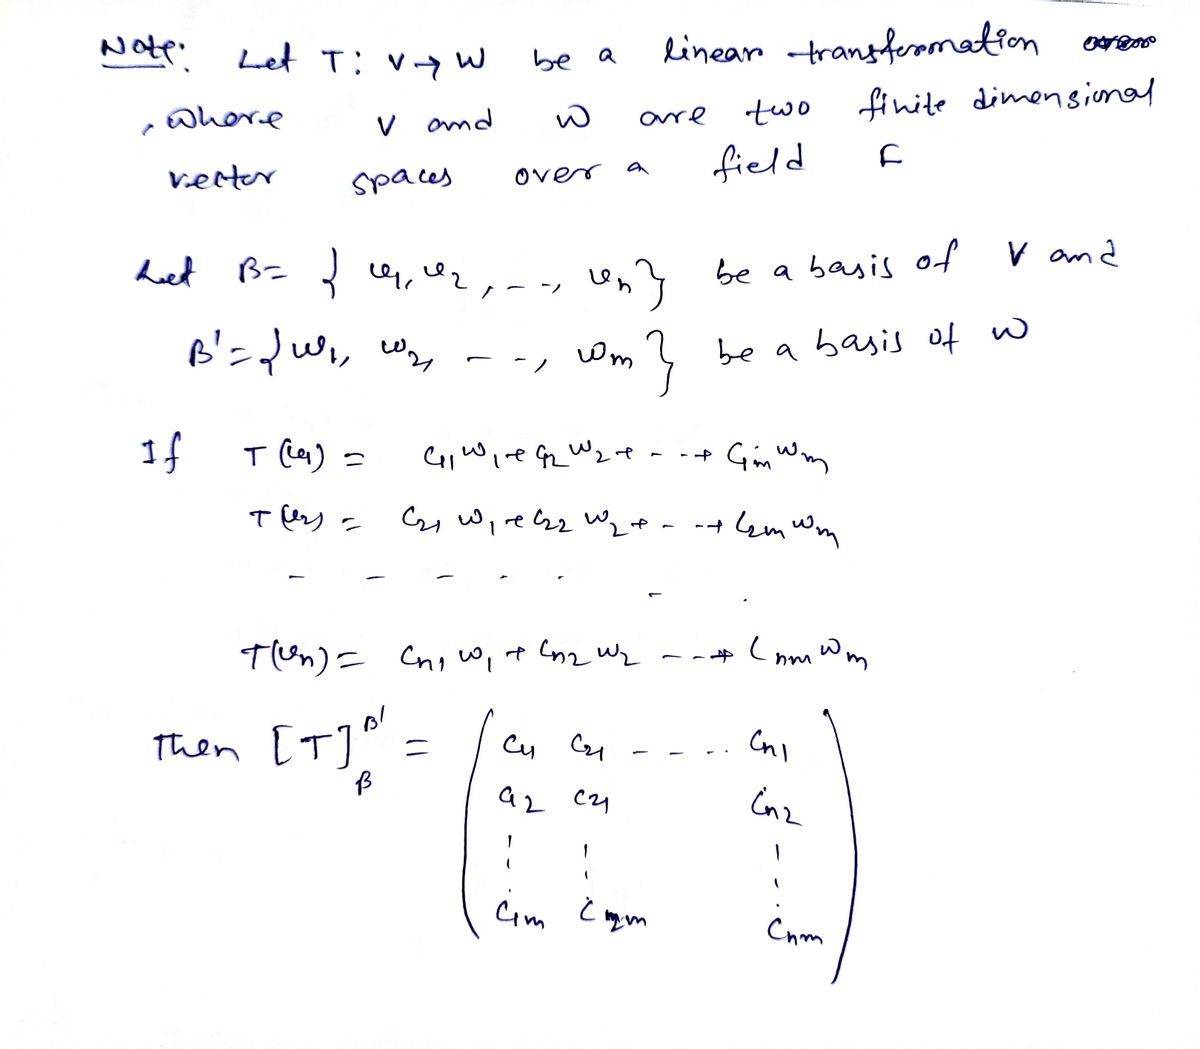 Note: Let T: V → W be a linear transformation
, where V and W are two finite dimensional
vector spaces over a field F
Let B = { v₁, v₂, - - -, vₙ} be a basis of V and
B' = { w₁, w₂, - - -, wₘ } be a basis of W
If T(v₁) = C₁₁ w₁ + C₁₂ w₂ + - - + C₁ₘ wₘ
T(v₂) = C₂₁ w₁ + C₂₂ w₂ + - - + C₂ₘ wₘ
- - - - - - -
T(vₙ) = Cₙ₁ w₁ + Cₙ₂ w₂ - - + Cₙₘ wₘ
Then [T]_β^B' = ( C₁₁ C₂₁ - - - - Cₙ₁
C₁₂ C₂₁ Cₙ₂
⋮ ⋮ ⋮
C₁ₘ C₂ₘ Cₙₘ )